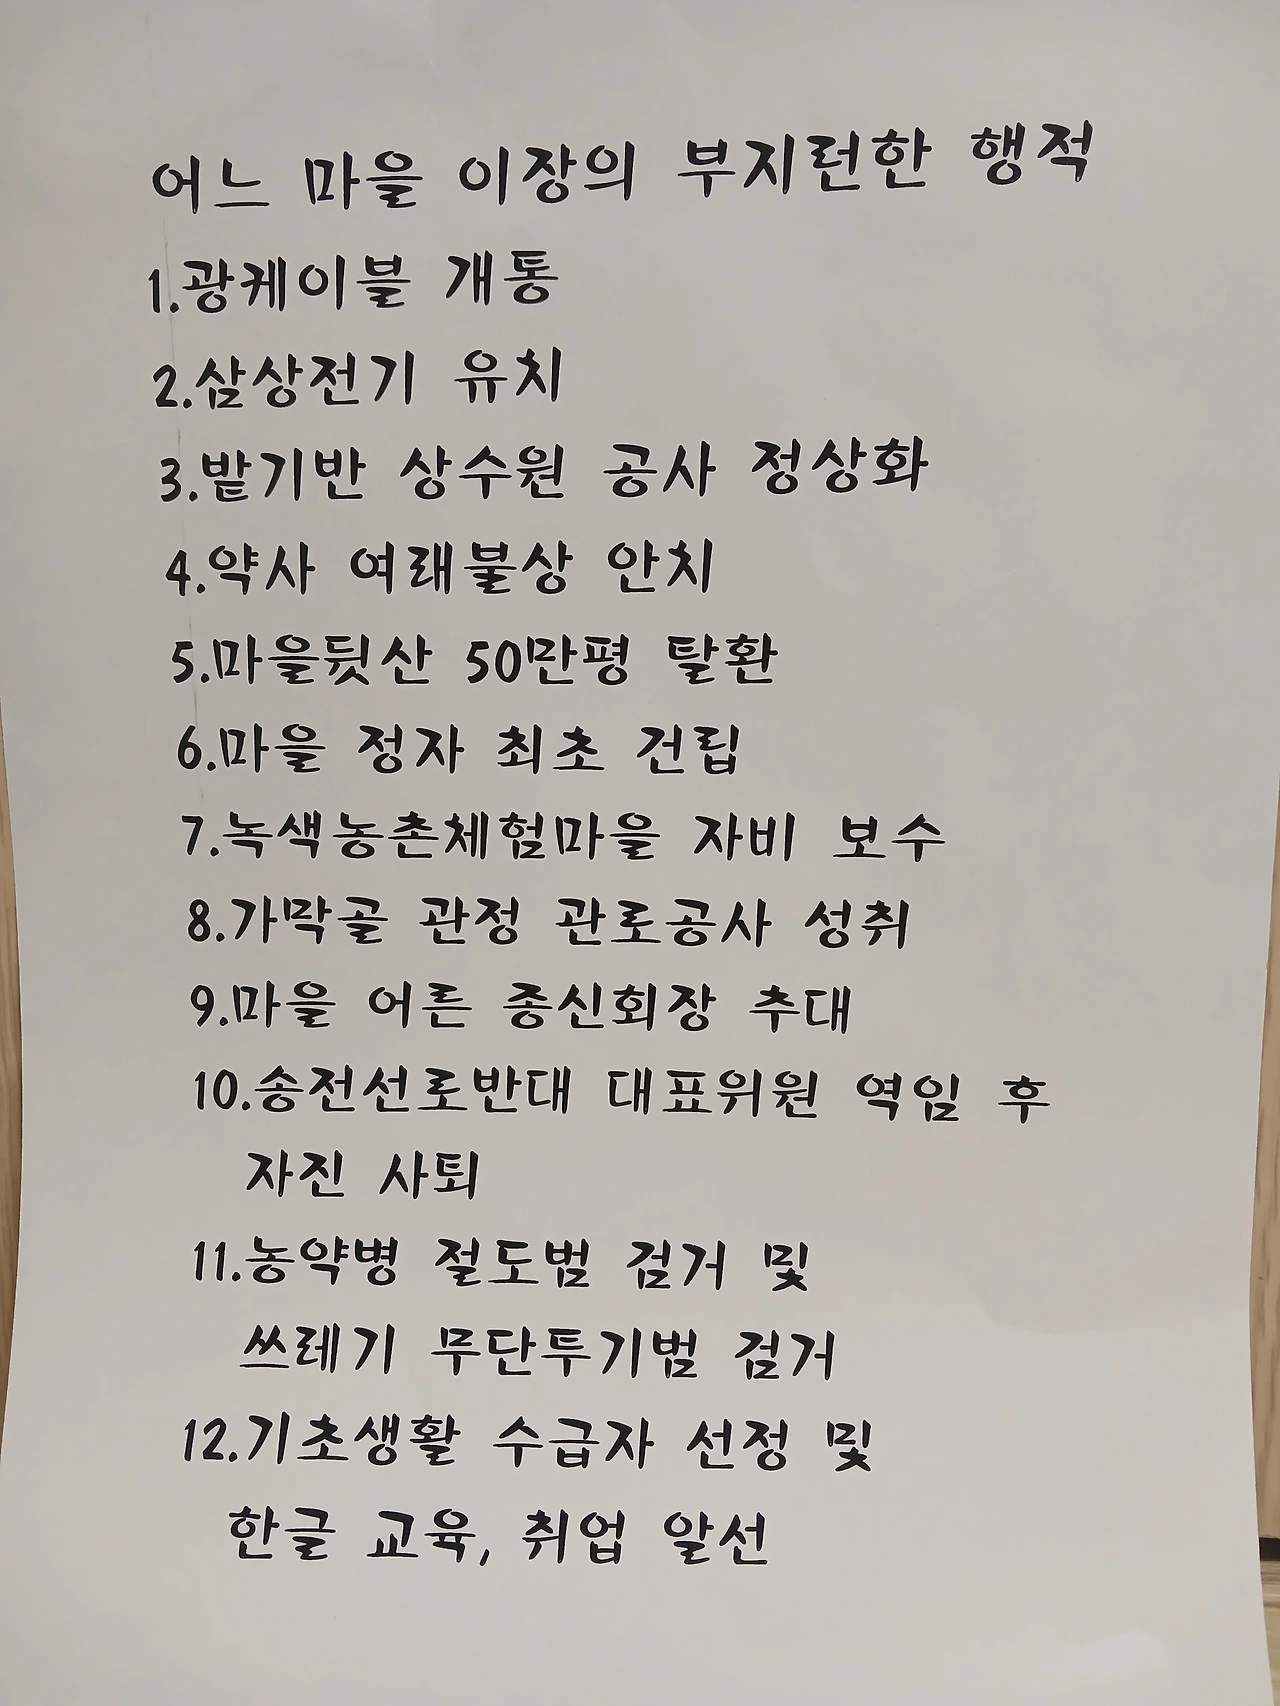 어느 마을 이장의 부지런한 행적
1.광케이블 개통
2.삼상전기 유치
3.밭기반 상수원 공사 정상화
4.약사 여래불상 안치
5.마을뒷산 50만평 탈환
6.마을 정자 최초 건립
7.녹색농촌체험마을 자비 보수
8.가막골 관정 관로공사 성취
9.마을 어른 종신회장 추대
10.송전선로반대 대표위원 역임 후
자진 사퇴
11.농약병 절도범 검거 및
쓰레기 무단투기범 검거
12.기초생활 수급자 선정 및
한글 교육, 취업 알선